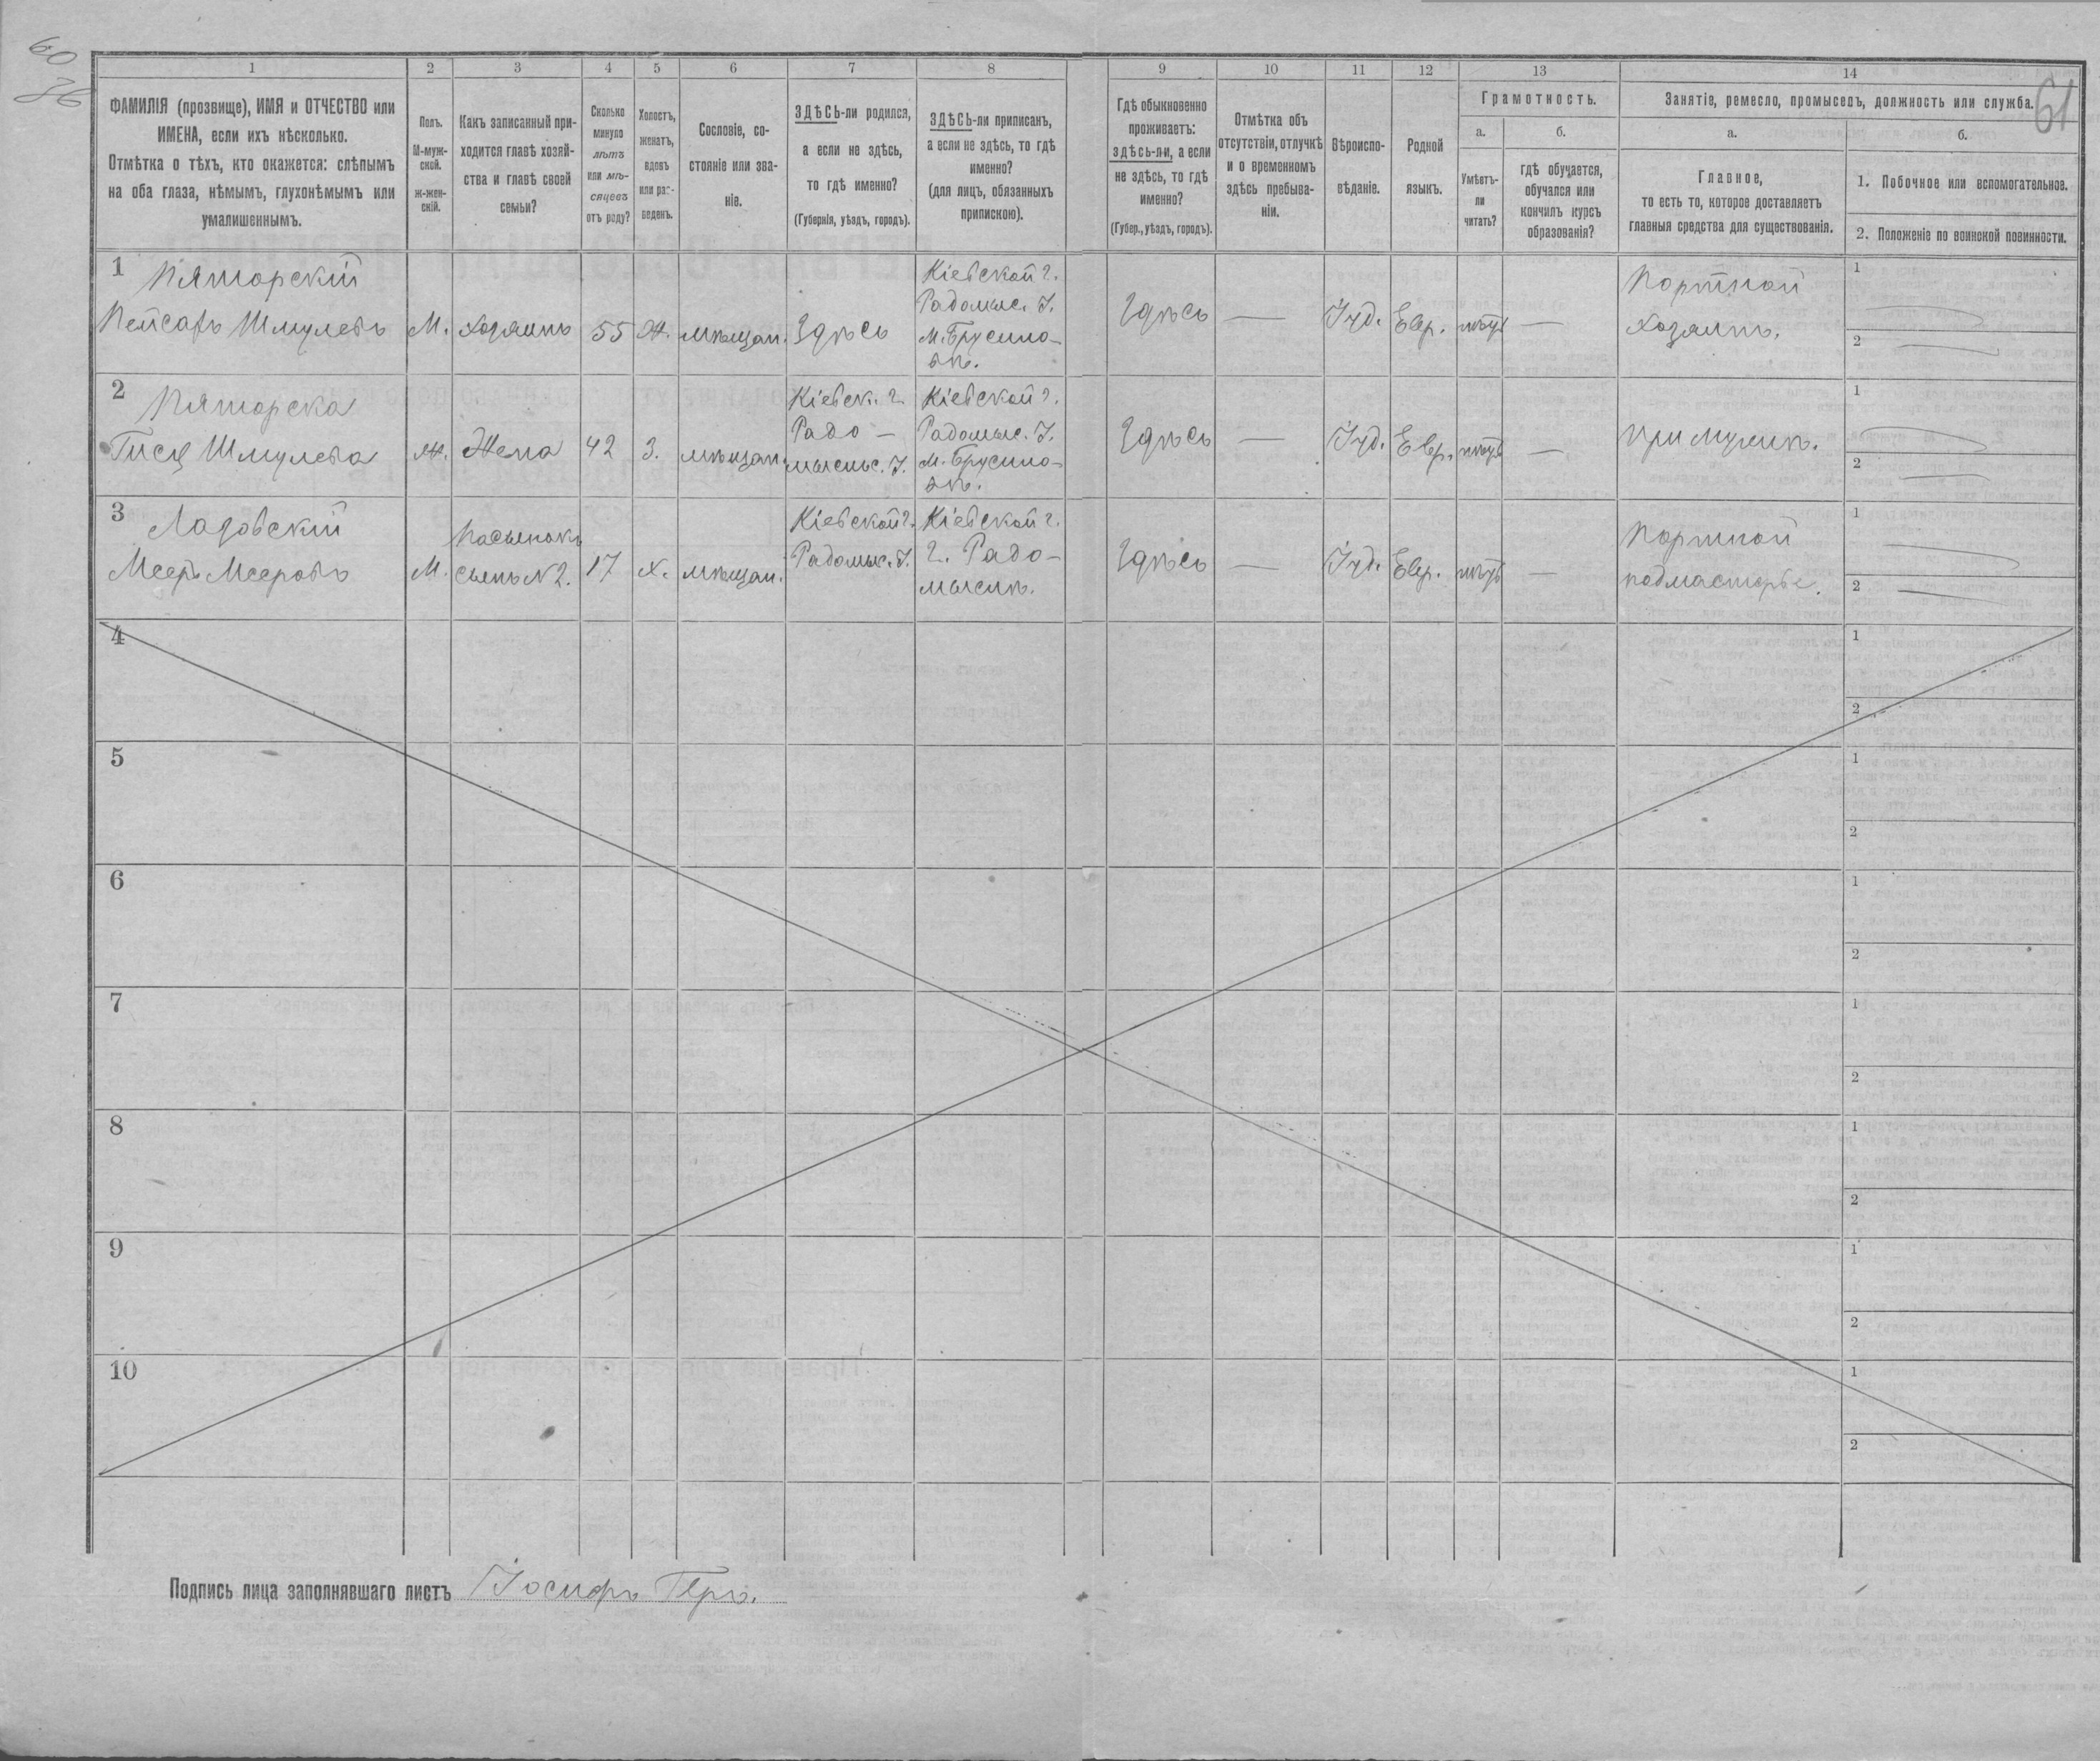 60
36
61
1 2 3 4 5 6 7 8 9 10 11 12 13 14
ФАМИЛІЯ (прозвище), ИМЯ и ОТЧЕСТВО или
ИМЕНА, если ихъ нѣсколько.
Отмѣтка о тѣхъ, кто окажется: слѣпымъ
на оба глаза, нѣмымъ, глухонѣмымъ или
умалишеннымъ.
Полъ.
М-муж-
ской.
Ж-жен-
скій.
Какъ записанный при-
ходится главѣ хозяй-
ства и главѣ своей
семьи?
Сколько
минуло
лѣтъ
или мѣ-
сяцевъ
отъ роду?
Холостъ,
женатъ,
вдовъ
или раз-
веденъ.
Сословіе, со-
стояніе или зва-
ніе.
ЗДѢСЬ-ли родился,
а если не здѣсь,
то гдѣ именно?
(Губернія, уѣздъ, городъ).
ЗДѢСЬ-ли приписанъ,
а если не здѣсь, то гдѣ
именно?
(для лицъ, обязанныхъ
припискою).
Гдѣ обыкновенно
проживаетъ:
здѣсь-ли, а если
не здѣсь, то гдѣ
именно?
(Губер., уѣздъ, городъ).
Отмѣтка объ
отсутствіи, отлучкѣ
и о временномъ
здѣсь пребыва-
ніи.
Вѣроиспо-
вѣданіе.
Родной
языкъ.
Грамотность.
а.
Умѣетъ-
ли
читать?
б.
гдѣ обучается,
обучался или
кончилъ курсъ
образованія?
Занятіе, ремесло, промыселъ, должность или служба.
а.
Главное,
то есть то, которое доставляетъ
главныя средства для существованія.
б.
1. Побочное или вспомогательное.
2. Положеніе по воинской повинности.
1
Пяторскій
Пейсахъ Шмулевъ
М.
хозяинъ
55
Ж.
мѣщан.
Здѣсь
Кіевской г.
Радомыс. У.
м. Брусило-
вѣ.
Здѣсь
—
Іуд.
Евр.
—
Портной
хозяинъ.
1
2
2
Пяторска
Шмулева
ж.
Жена
42
З.
мѣщан.
Кіевск. г.
Радо-
мысльс. У.
Кіевской г.
Радомыс. У.
м. Брусило-
вѣ.
Здѣсь
—
Іуд.
Евр.
—
При мужѣ.
1
2
3
Лазовскій
Мееръ Мееровъ
М.
Пасынокъ
сынъ N 2.
17
Х.
мѣщан.
Кіевской г.
Радомыс. У.
Кіевской г.
г. Радо-
мыслѣ.
Здѣсь
—
Іуд.
Евр.
—
Портной
подмастерье.
1
2
4
1
2
5
1
2
6
1
2
7
1
2
8
1
2
9
1
2
10
1
2
Подпись лица заполнявшаго листъ Іосифъ